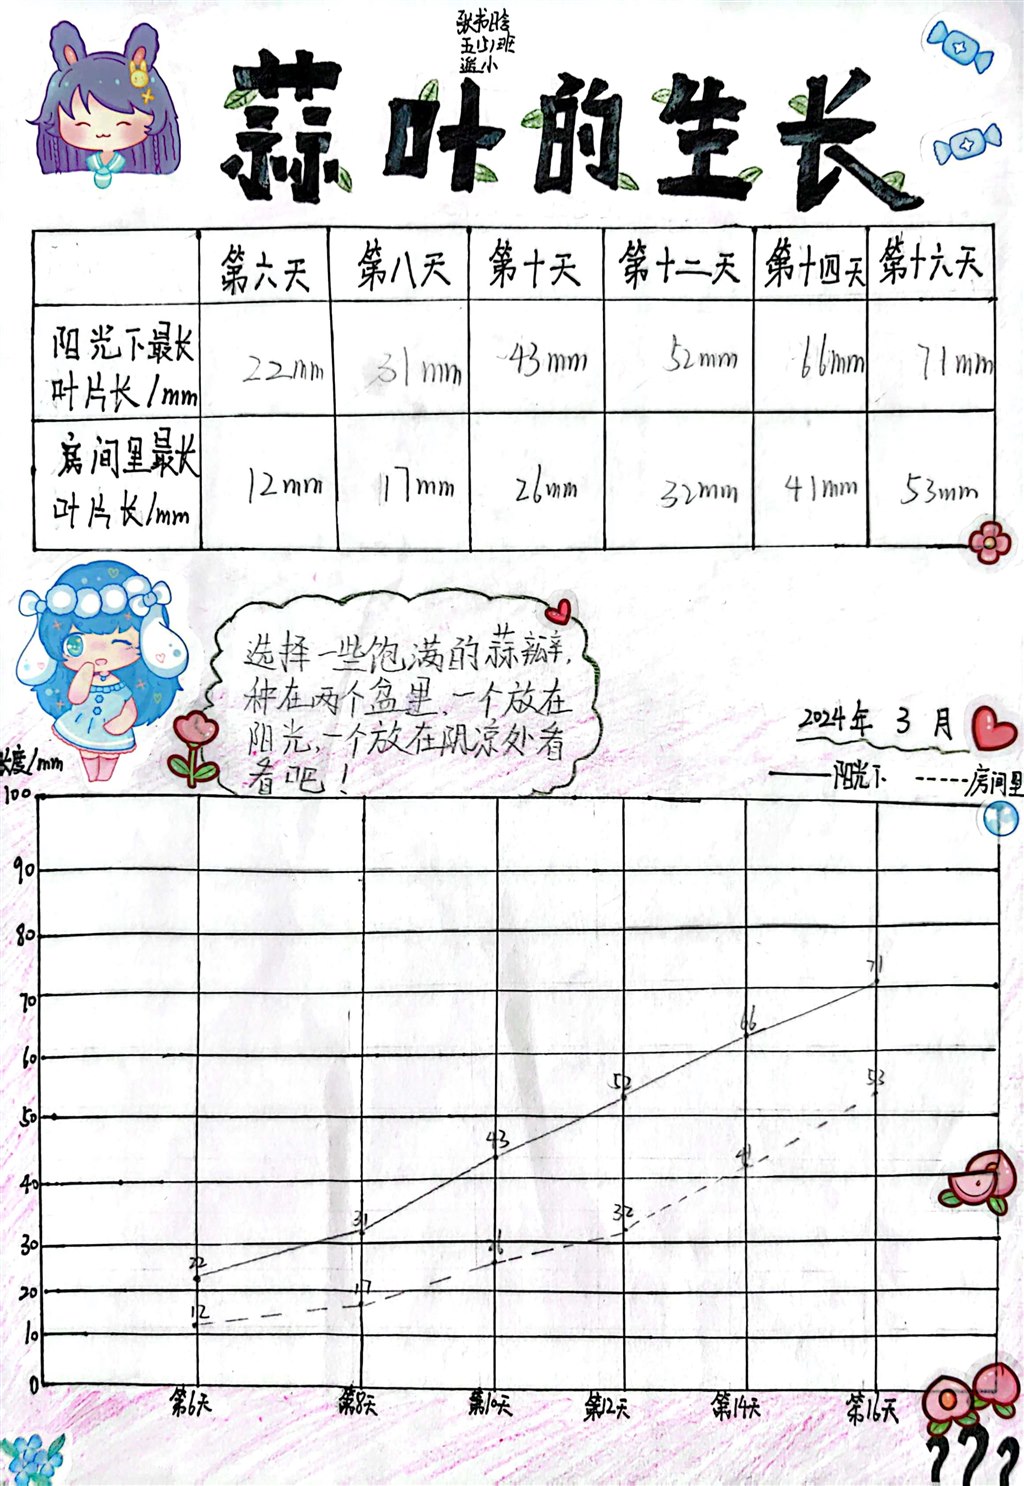 张书晗
五(5)班
遥小
蒜叶的生长
第六天 第八天 第十天 第十二天 第十四天 第十六天
阳光下最长
叶片长/mm
22mm 31mm 43mm 52mm 66mm 71mm
房间里最长
叶片长/mm
12mm 17mm 26mm 32mm 41mm 53mm
选择一些饱满的蒜瓣,
种在两个盆里,一个放在
阳光,一个放在阴凉处看
看吧!
2024年 3月
长度/mm
阳光下 房间里
100
90
80
71
70
66
60
53
52
50
43
41
40
32
31
30
26
22
20
17
12
10
0
第6天 第8天 第10天 第12天 第14天 第16天